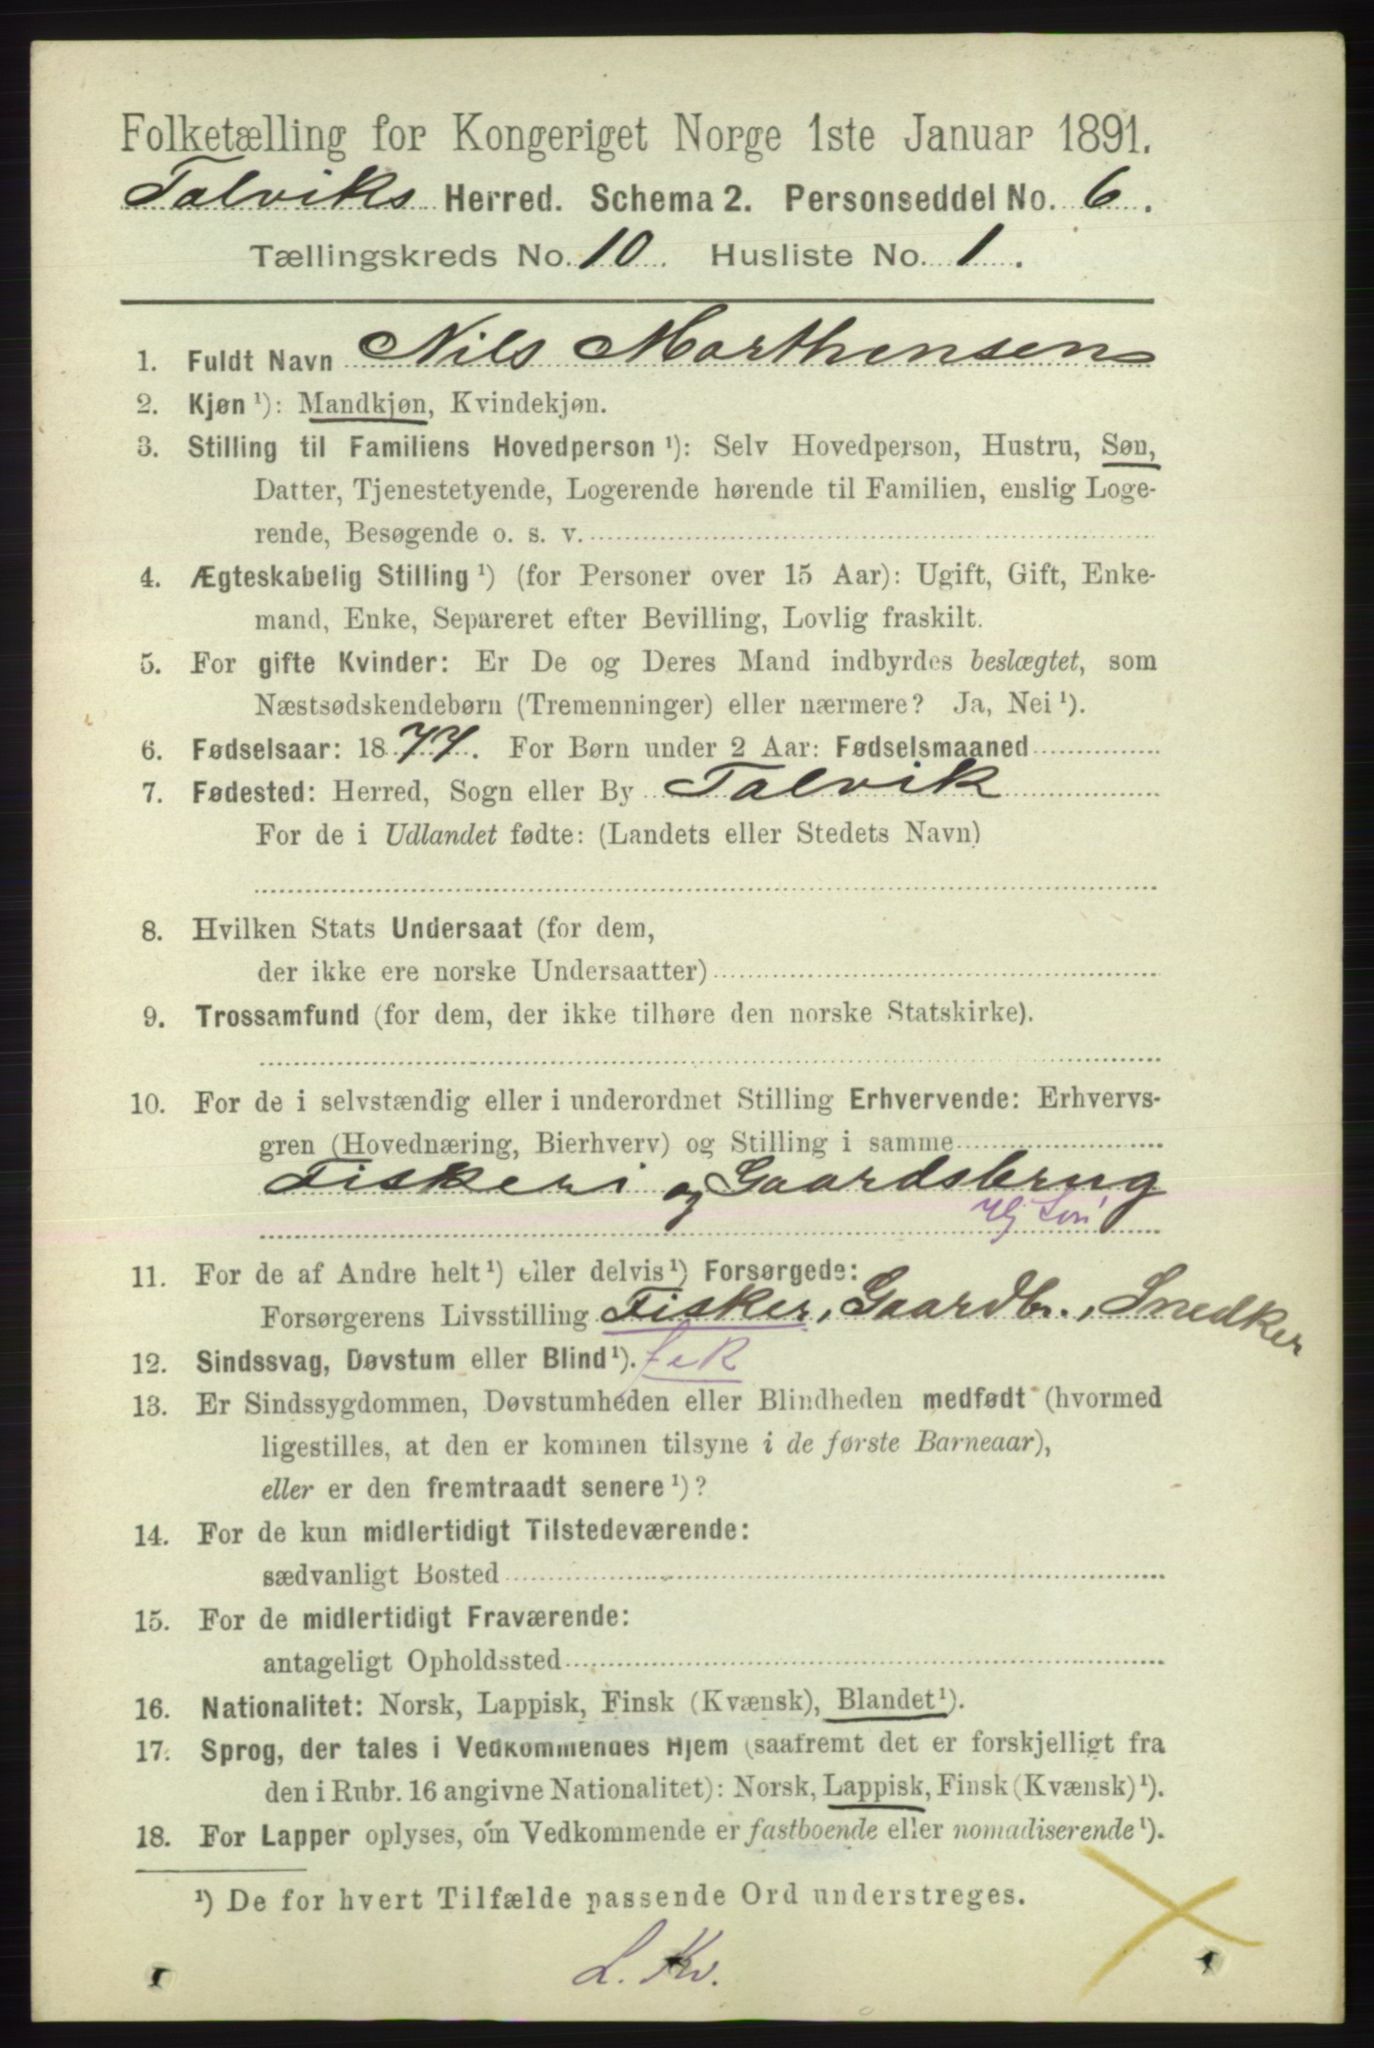 Folketælling for Kongeriget Norge 1ste Januar 1891.
Talviks Herred. Schema 2. Personseddel No. 6.
Tællingskreds No. 10. Husliste No. 1.
1. Fuldt Navn Nils Morthensen
2. Kjøn ¹): Mandkjøn, Kvindekjøn.
3. Stilling til Familiens Hovedperson ¹): Selv Hovedperson, Hustru, Søn,
Datter, Tjenestetyende, Logerende hørende til Familien, enslig Loge-
rende, Besøgende o. s. v.
4. Ægteskabelig Stilling ¹) (for Personer over 15 Aar): Ugift, Gift, Enke-
mand, Enke, Separeret efter Bevilling, Lovlig fraskilt.
5. For gifte Kvinder: Er De og Deres Mand indbyrdes beslægtet, som
Næstsødskendebørn (Tremenninger) eller nærmere? Ja, Nei ¹).
6. Fødselsaar: 1877. For Børn under 2 Aar: Fødselsmaaned
7. Fødested: Herred, Sogn eller By Talvik
For de i Udlandet fødte: (Landets eller Stedets Navn)
8. Hvilken Stats Undersaat (for dem,
der ikke ere norske Undersaatter)
9. Trossamfund (for dem, der ikke tilhøre den norske Statskirke).
10. For de i selvstændig eller i underordnet Stilling Erhvervende: Erhvervs-
gren (Hovednæring, Bierhverv) og Stilling i samme
Fiskeri og Gaardsbrug
11. For de af Andre helt ¹) eller delvis ¹) Forsørgede:
Forsørgerens Livsstilling Fisker, Gaardbr., Snedker
12. Sindssvag, Døvstum eller Blind ¹).
13. Er Sindssygdommen, Døvstumheden eller Blindheden medfødt (hvormed
ligestilles, at den er kommen tilsyne i de første Barneaar),
eller er den fremtraadt senere ¹)?
14. For de kun midlertidigt Tilstedeværende:
sædvanligt Bosted
15. For de midlertidigt Fraværende:
antageligt Opholdssted
16. Nationalitet: Norsk, Lappisk, Finsk (Kvænsk), Blandet ¹).
17. Sprog, der tales i Vedkommendes Hjem (saafremt det er forskjelligt fra
den i Rubr. 16 angivne Nationalitet): Norsk, Lappisk, Finsk (Kvænsk) ¹).
18. For Lapper oplyses, om Vedkommende er fastboende eller nomadiserende ¹).
¹) De for hvert Tilfælde passende Ord understreges.
L. Kv.